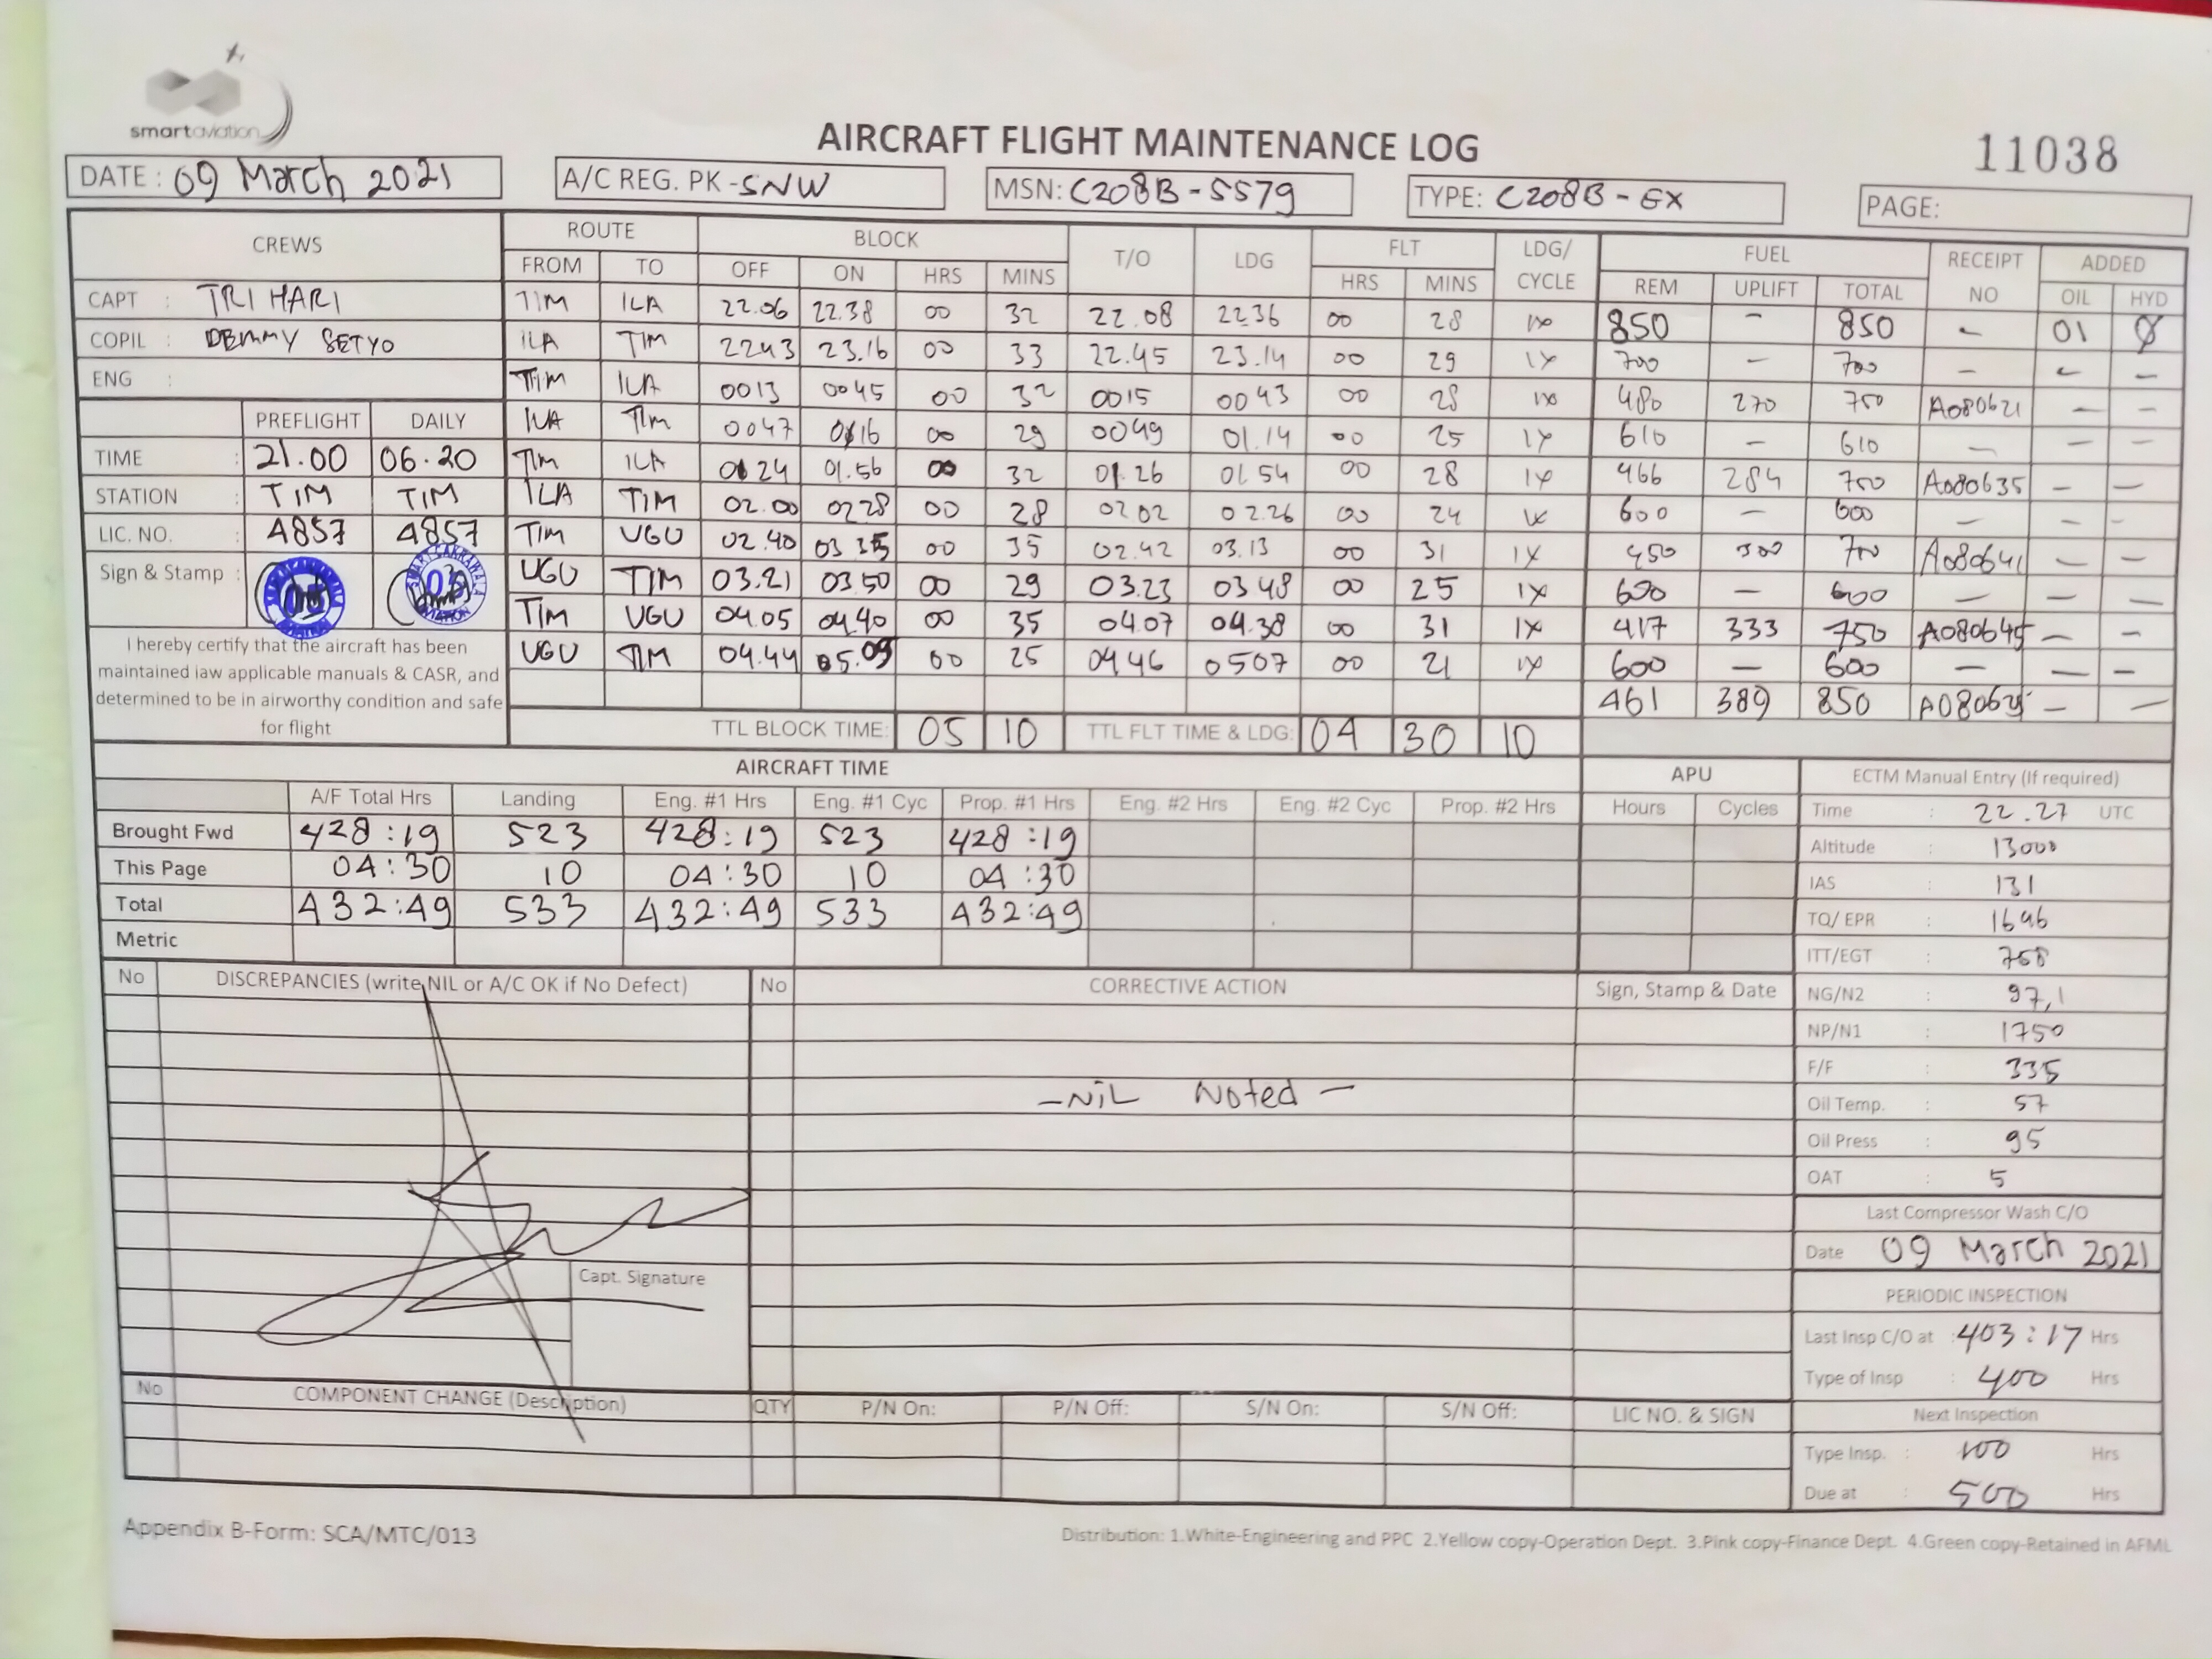 smartaviation
AIRCRAFT FLIGHT MAINTENANCE LOG
11038
DATE : 09 March 2021 A/C REG. PK-SNW MSN: C208B-5579 TYPE: C208B-EX PAGE:
CREWS ROUTE BLOCK T/O LDG FLT LDG/CYCLE FUEL RECEIPT NO ADDED
FROM TO OFF ON HRS MINS HRS MINS REM UPLIFT TOTAL OIL HYD
CAPT : TRI HARI TIM ILA 22.06 22.38 00 32 22.08 2236 00 28 1x 850 - 850 - 01 Ø
COPIL : DEMMY SETYO ILA TIM 2243 23.16 00 33 22.45 23.14 00 29 1x 700 - 700 - - -
ENG : TIM ILA 0013 0045 00 32 0015 0043 00 28 1x 480 270 750 A080621 - -
PREFLIGHT DAILY ILA TIM 0047 0116 00 29 0049 01.14 00 25 1x 610 - 610 - - -
TIME : 21.00 06.20 TIM ILA 0124 01.56 00 32 01.26 01 54 00 28 1x 466 284 750 A080635 - -
STATION : TIM TIM ILA TIM 02.00 0228 00 28 0202 02.26 00 24 1x 600 - 600 - - -
LIC. NO. : 4857 4857 TIM UGU 02.40 03 15 00 35 02.42 03.13 00 31 1x 450 300 750 A080641 - -
Sign & Stamp : UGU TIM 03.21 03 50 00 29 03.23 03 48 00 25 1x 600 - 600 - - -
TIM UGU 04.05 04.40 00 35 04.07 04.38 00 31 1x 417 333 750 A080645 - -
UGU TIM 04.44 05.09 00 25 0446 0507 00 21 1x 600 - 600 - - -
461 389 850 - -
I hereby certify that the aircraft has been
maintained iaw applicable manuals & CASR, and
determined to be in airworthy condition and safe
for flight
TTL BLOCK TIME: 05 10 TTL FLT TIME & LDG: 04 30 10
AIRCRAFT TIME APU
A/F Total Hrs Landing Eng. #1 Hrs Eng. #1 Cyc Prop. #1 Hrs Eng. #2 Hrs Eng. #2 Cyc Prop. #2 Hrs Hours Cycles
Brought Fwd 428:19 523 428:19 523 428:19
This Page 04:30 10 04:30 10 04:30
Total 432:49 533 432:49 533 432:49
Metric
ECTM Manual Entry (If required)
Time : 22.27 UTC
Altitude : 13000
IAS : 131
TQ/ EPR : 1646
ITT/EGT : 758
NG/N2 : 97,1
NP/N1 : 1750
F/F : 335
Oil Temp. : 57
Oil Press : 95
OAT : 5
No DISCREPANCIES (write NIL or A/C OK if No Defect) No CORRECTIVE ACTION Sign, Stamp & Date
-NiL Noted-
Capt. Signature
Last Compressor Wash C/O
Date 09 March 2021
PERIODIC INSPECTION
Last Insp C/O at : 403:17 Hrs
Type of Insp : 400 Hrs
Next Inspection
Type Insp. : 100 Hrs
Due at : 500 Hrs
No COMPONENT CHANGE (Description) QTY P/N On: P/N Off: S/N On: S/N Off: LIC NO. & SIGN
Appendix B-Form: SCA/MTC/013
Distribution: 1.White-Engineering and PPC 2.Yellow copy-Operation Dept. 3.Pink copy-Finance Dept. 4.Green copy-Retained in AFML